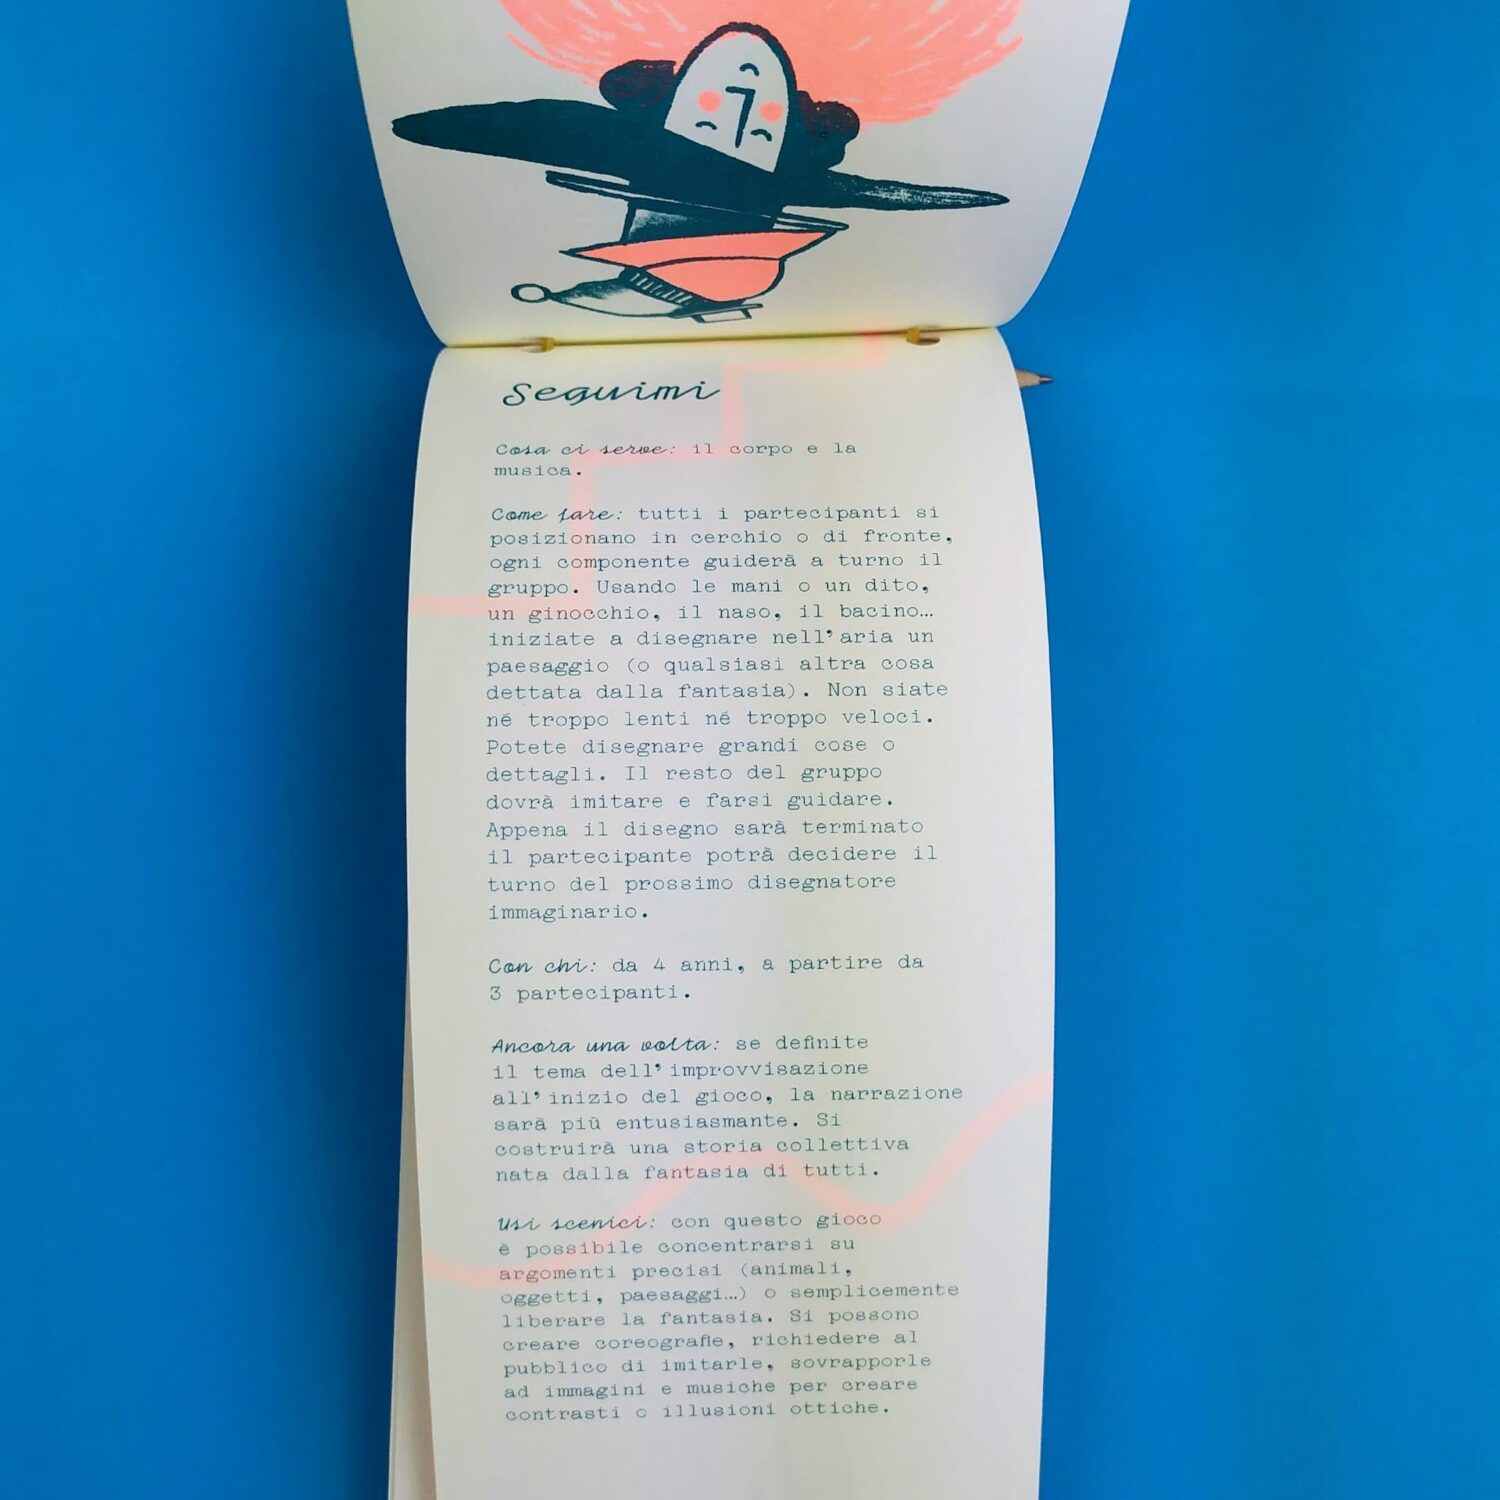 Seguimi
Cosa ci serve: il corpo e la
musica.
Come fare: tutti i partecipanti si
posizionano in cerchio o di fronte,
ogni componente guiderà a turno il
gruppo. Usando le mani o un dito,
un ginocchio, il naso, il bacino…
iniziate a disegnare nell'aria un
paesaggio (o qualsiasi altra cosa
dettata dalla fantasia). Non siate
né troppo lenti né troppo veloci.
Potete disegnare grandi cose o
dettagli. Il resto del gruppo
dovrà imitare e farsi guidare.
Appena il disegno sarà terminato
il partecipante potrà decidere il
turno del prossimo disegnatore
immaginario.
Con chi: da 4 anni, a partire da
3 partecipanti.
Ancora una volta: se definite
il tema dell'improvvisazione
all'inizio del gioco, la narrazione
sarà più entusiasmante. Si
costruirà una storia collettiva
nata dalla fantasia di tutti.
Usi scenici: con questo gioco
è possibile concentrarsi su
argomenti precisi (animali,
oggetti, paesaggi…) o semplicemente
liberare la fantasia. Si possono
creare coreografie, richiedere al
pubblico di imitarle, sovrapporle
ad immagini e musiche per creare
contrasti o illusioni ottiche.